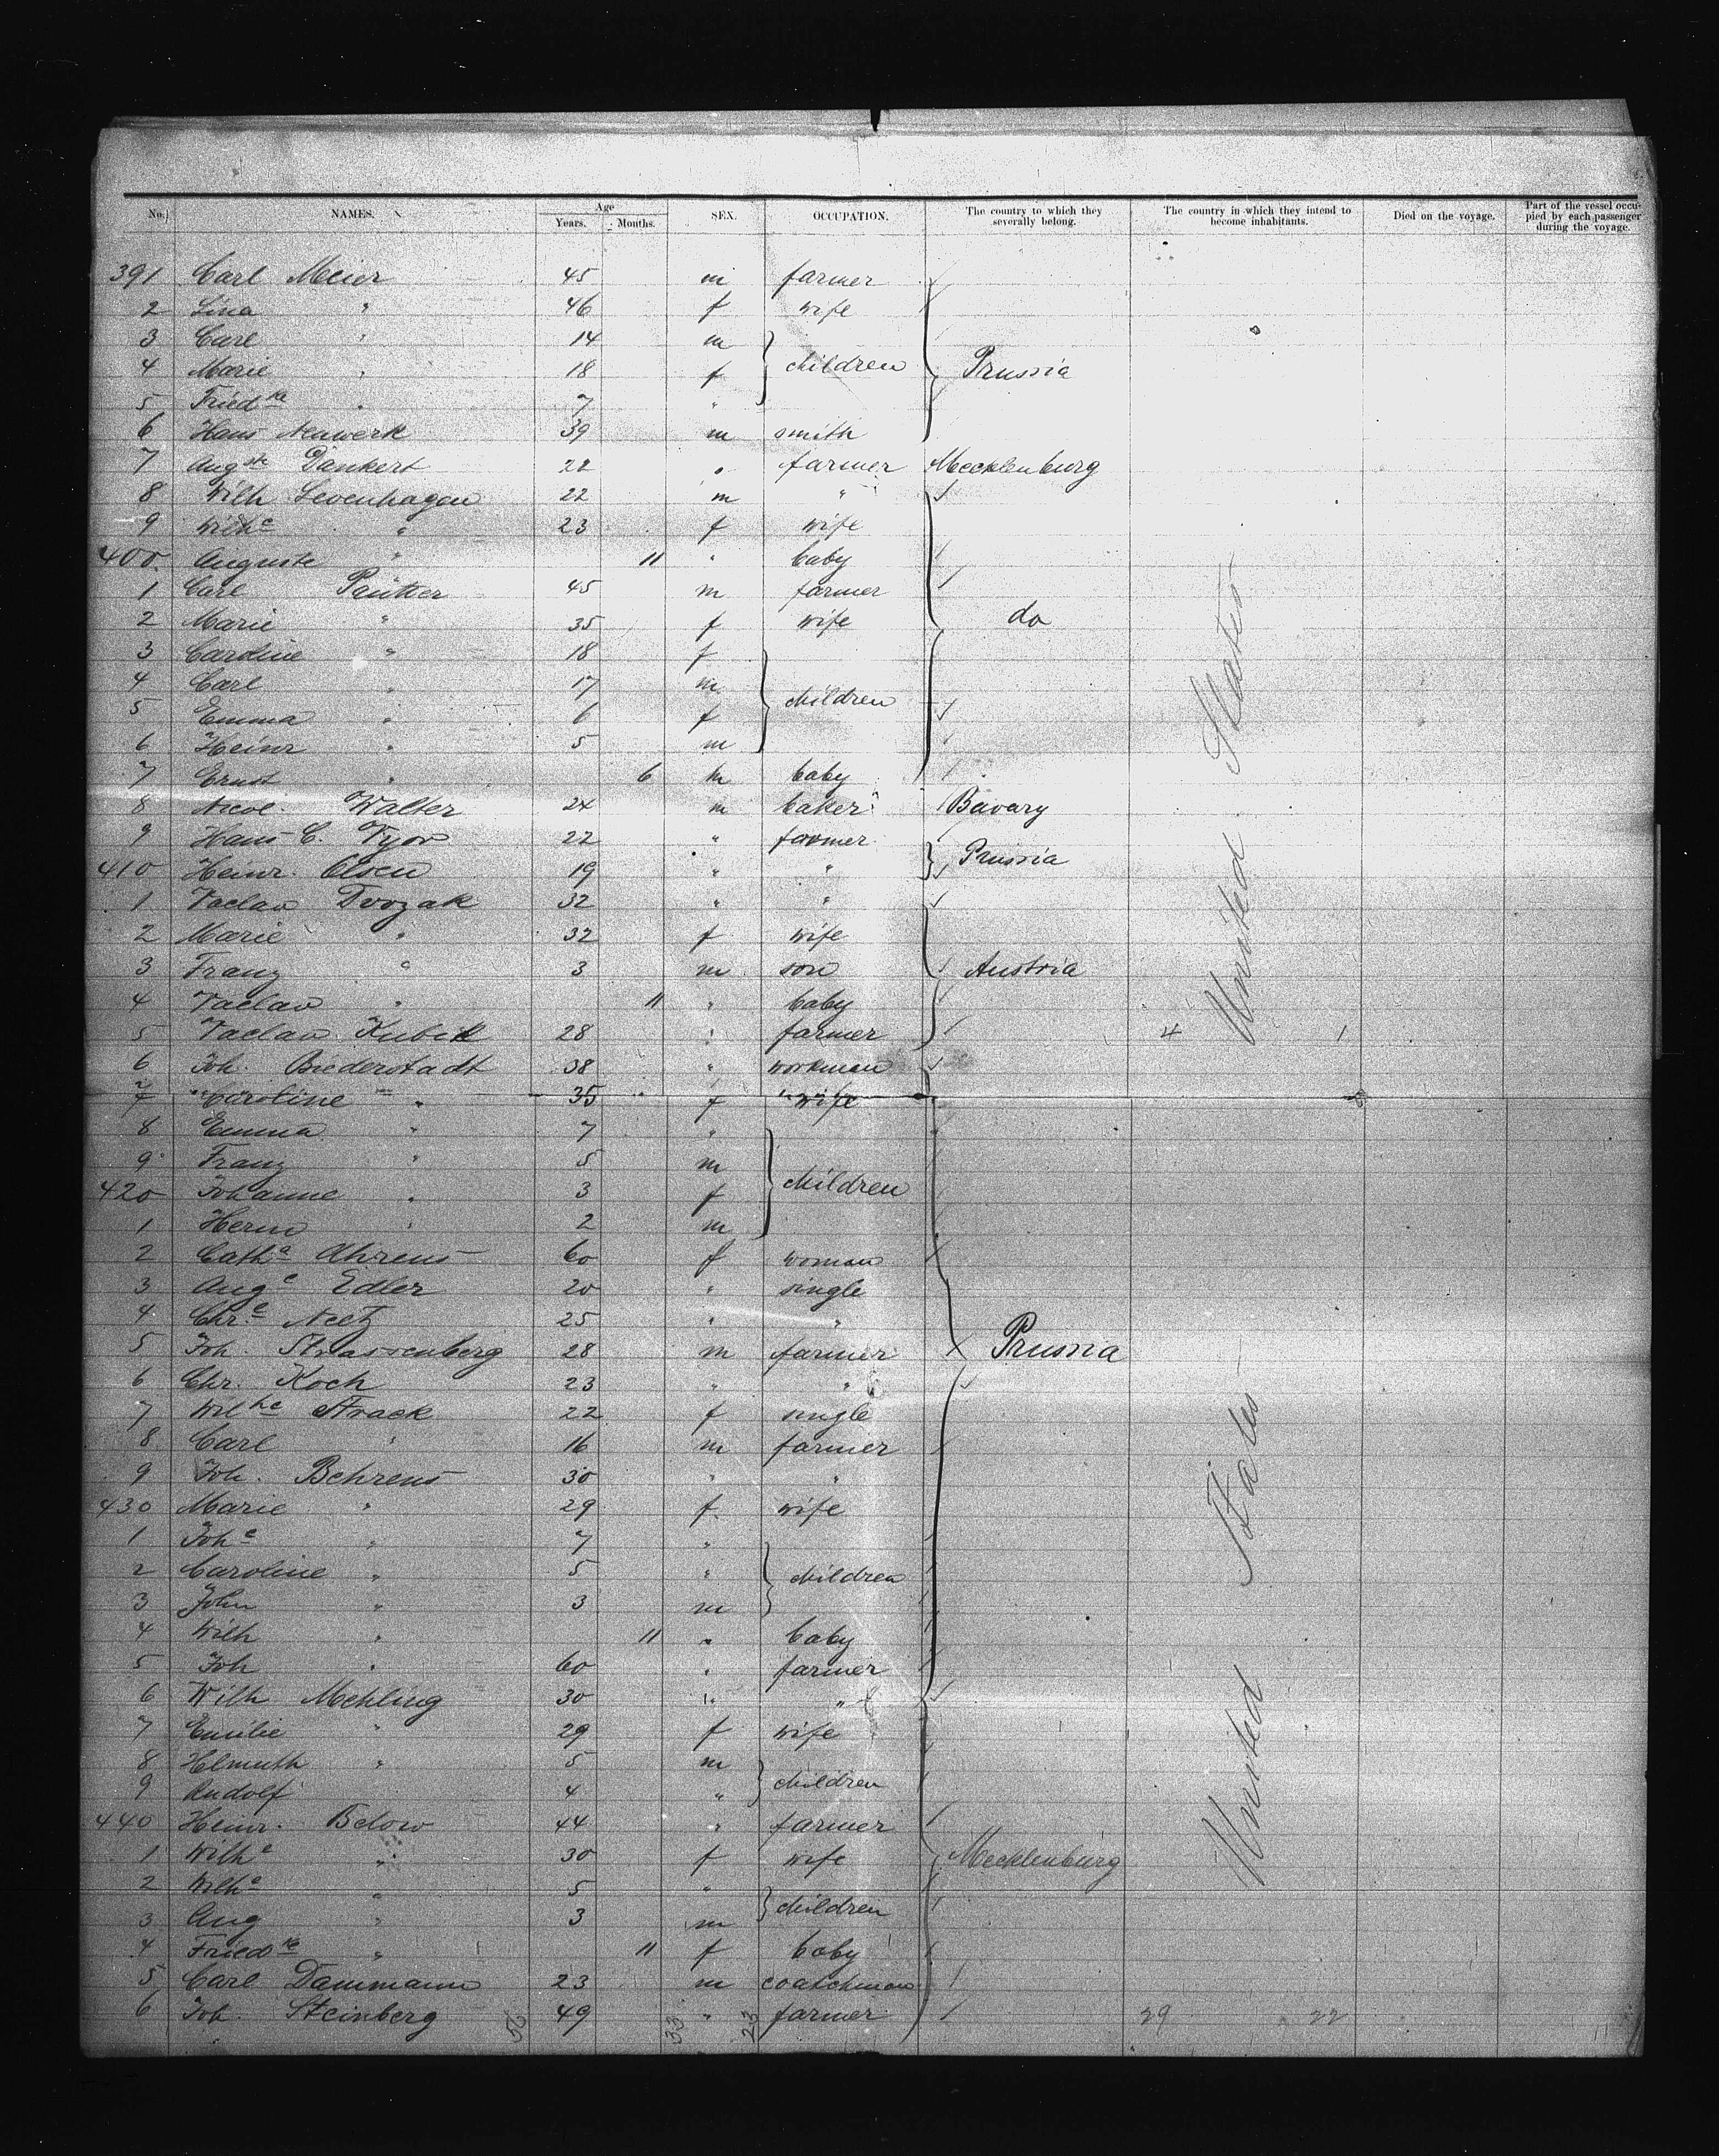 No. NAMES. Age Years. Months. SEX. OCCUPATION. The country to which they severally belong. The country in which they intend to become inhabitants. Died on the voyage. Part of the vessel occupied by each passenger during the voyage.
391 Carl Meier 45 m farmer
2 Lina " 46 f wife
3 Carl " 14 m
4 Marie " 18 f children Prussia
5 Friedke " 7 "
6 Hans Neuwerk 39 m smith
7 Augste Dankert 22 " farmer Mecklenburg
8 Wilh Levenhagen 22 m "
9 Wilhe " 23 f wife
400 Auguste " 11 " baby
1 Carl Pautter 45 m farmer
2 Marie " 35 f wife do
3 Caroline " 18 f
4 Carl " 17 m children
5 Emma " 6 f
6 Heinr " 5 m
7 Ernst " 6 m baby
8 Nicol. Walter 24 m baker Bavary
9 Hans C. Tyor 22 " farmer
410 Heinr. Olsen 19 " " Prussia
1 Vaclav Dvozak 32 " "
2 Marie " 32 f wife
3 Franz " 3 m son Austria
4 Vaclav " 11 " baby
5 Vaclav Kubik 28 " farmer 4 1
6 Joh. Biederstadt 38 " workman
7 Caroline " 35 f wife
8 Emma " 7 "
9 Franz " 5 m
420 Johanne " 3 f children
1 Herm " 2 m
2 Catha Ahrens 60 f woman
3 Auge Edler 20 " single
4 Chre Neetz 25 " "
5 Joh. Strassenberg 28 m farmer Prussia
6 Chr. Koch 23 " "
7 Wilhe Strack 22 f single
8 Carl " 16 m farmer
9 Joh. Behrens 30 " "
430 Marie " 29 f wife
1 Johe " 7 "
2 Caroline " 5 " children
3 John " 3 m
4 Wilh " 11 " baby
5 Joh " 60 " farmer
6 Wilh Mehling 30 " "
7 Emilie " 29 f wife
8 Helmuth " 5 m
9 Rudolf 4 " children
440 Heinr. Below 44 " farmer
1 Wilhe " 30 f wife Mecklenburg
2 Wilhe " 5 "
3 Aug " 3 m children
4 Friedke " 11 f baby
5 Carl Dammann 23 m coatchman
6 Joh. Steinberg 49 " farmer 29 22
33 23
United States
United States